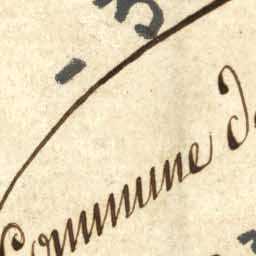 - 3
Commune d